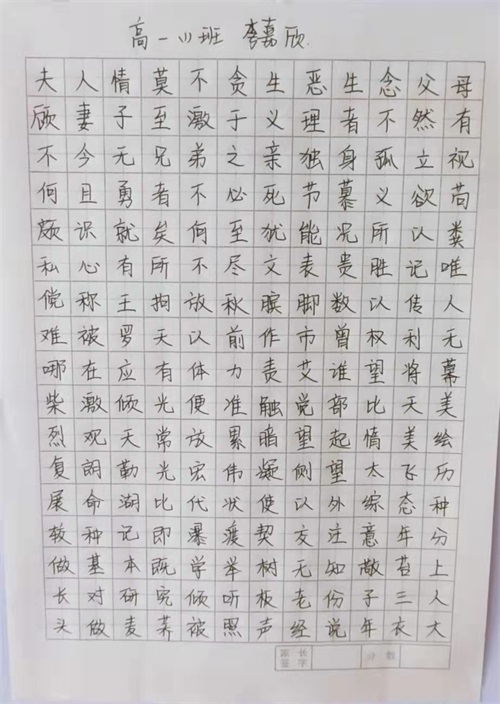 高一(1)班 李嘉欣
夫人情莫不贪生恶生念父母
顾妻子至激于义理者不然有
不今无兄弟之亲独身孤立视
何且勇者不必死节慕义欲苟
颇识就矣何至犹能况所以粪
私心有所不尽文表贵胜记唯
傥称王拘放秋膑脚数以传人
难被罗天以前作市曾权利无
哪在应有体力责艾谁望将幕
柴激倾光便准触觉部比天美
烈观天常放累暗望起情美绘
复朗勤光宏伟凝侧望太飞历
展命湖比代状使以外综态种
较种记即暴渡契友注意年分
做基本既学举树无知敵苔上
长对研究倾听板老份子三人
头做麦荞被照声经说年衣大
家长签字 分数